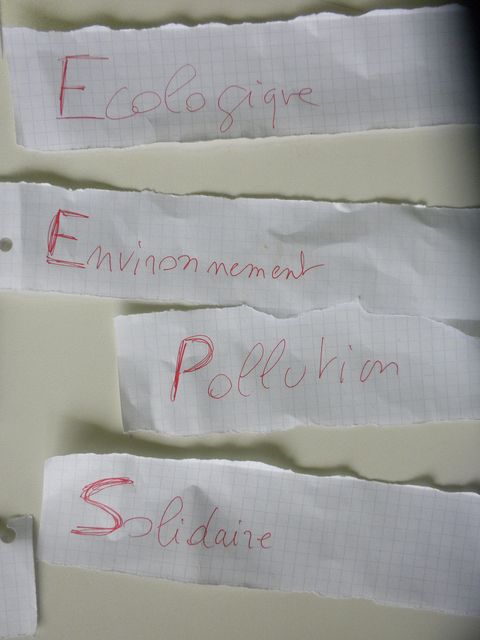 Ecologique
Environnement
Pollution
Solidaire